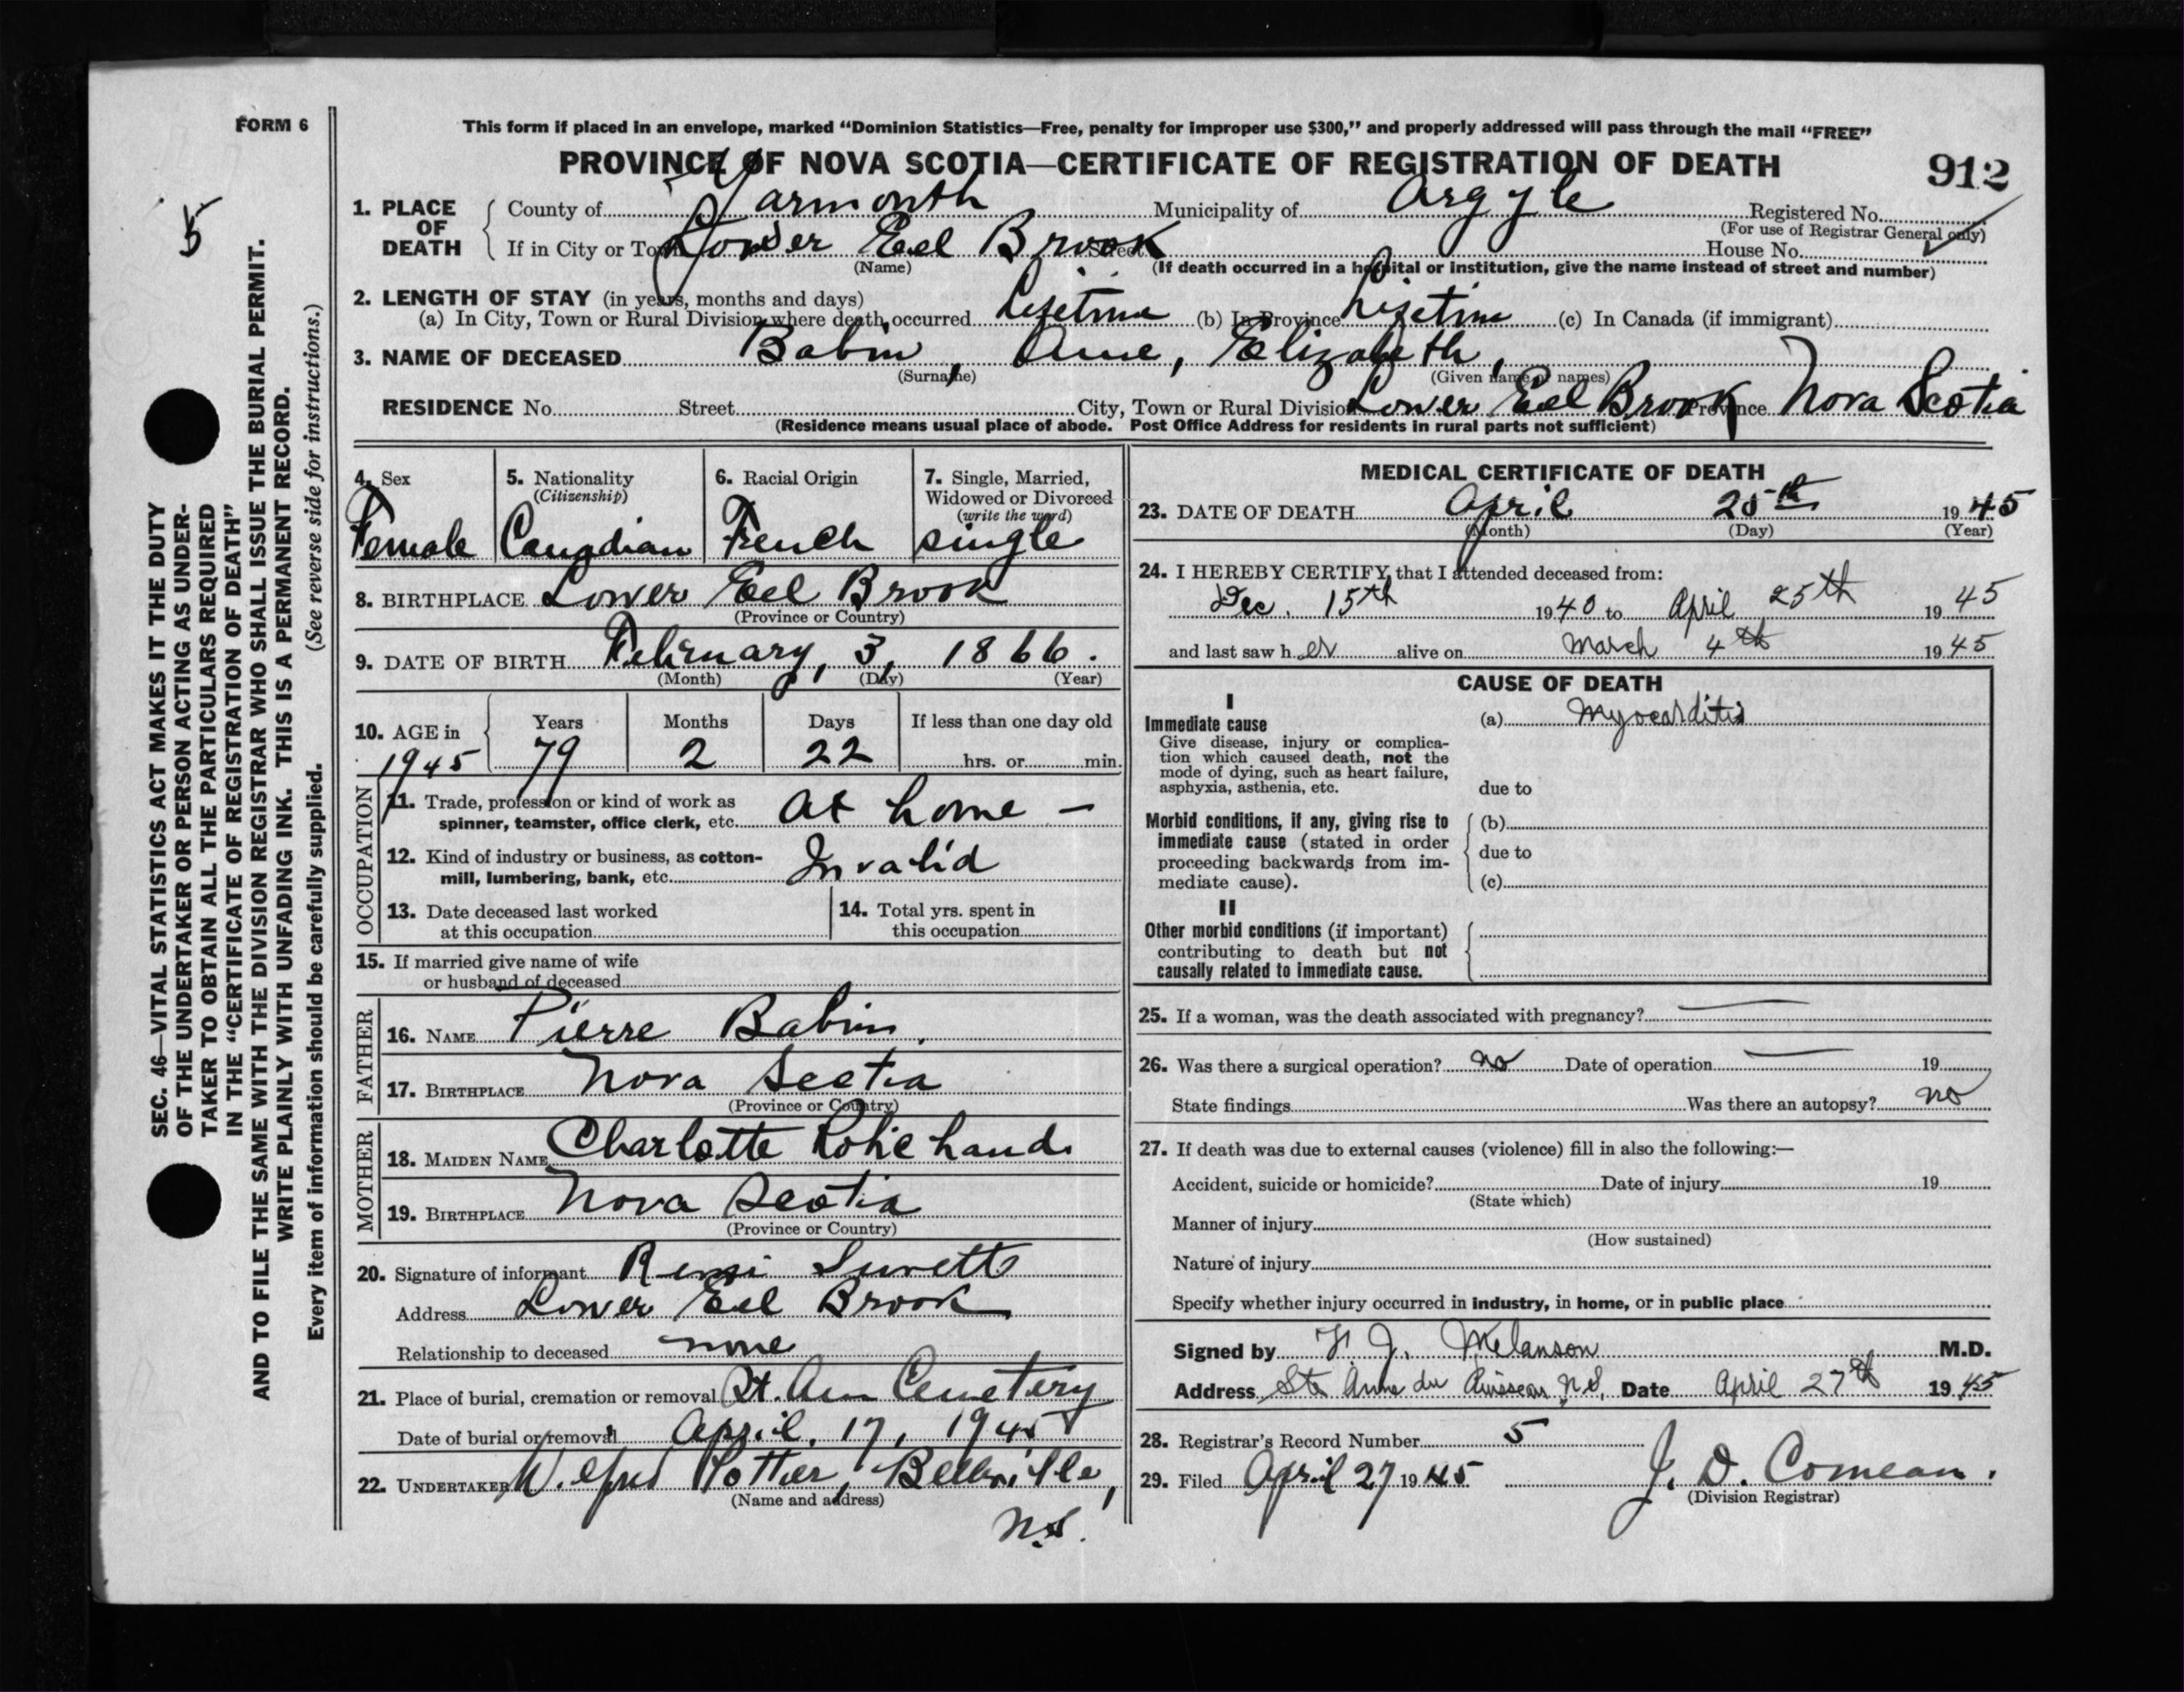 FORM 6
This form if placed in an envelope, marked “Dominion Statistics—Free, penalty for improper use $300,” and properly addressed will pass through the mail “FREE”
PROVINCE OF NOVA SCOTIA—CERTIFICATE OF REGISTRATION OF DEATH 912
5
1. PLACE OF DEATH
County of Yarmouth Municipality of Argyle Registered No.
(For use of Registrar General only)
If in City or Town Lower Eel Brook Street House No.
(Name) (If death occurred in a hospital or institution, give the name instead of street and number)
2. LENGTH OF STAY (in years, months and days)
(a) In City, Town or Rural Division where death occurred Lifetime (b) In Province Lifetime (c) In Canada (if immigrant)
3. NAME OF DECEASED Babin, Anne, Elizabeth,
(Surname) (Given name or names)
RESIDENCE No. Street City, Town or Rural Division Lower Eel Brook Province Nova Scotia
(Residence means usual place of abode. Post Office Address for residents in rural parts not sufficient)
4. Sex
Female
5. Nationality
(Citizenship)
Canadian
6. Racial Origin
French
7. Single, Married,
Widowed or Divorced
(write the word)
single
8. BIRTHPLACE Lower Eel Brook
(Province or Country)
9. DATE OF BIRTH February, 3, 1866.
(Month) (Day) (Year)
10. AGE in Years Months Days If less than one day old
1945 79 2 22 hrs. or min.
OCCUPATION
11. Trade, profession or kind of work as
spinner, teamster, office clerk, etc. At home —
12. Kind of industry or business, as cotton-
mill, lumbering, bank, etc. Invalid
13. Date deceased last worked
at this occupation
14. Total yrs. spent in
this occupation
15. If married give name of wife
or husband of deceased
FATHER
16. NAME Pierre Babin.
17. BIRTHPLACE Nova Scotia
(Province or Country)
MOTHER
18. MAIDEN NAME Charlotte Robichaud.
19. BIRTHPLACE Nova Scotia
(Province or Country)
20. Signature of informant Remi Surette
Address Lower Eel Brook
Relationship to deceased none
21. Place of burial, cremation or removal St. Ann Cemetery
Date of burial or removal April, 17, 1945
22. UNDERTAKER Wilfred Pottier, Belleville,
(Name and address)
N.S.
MEDICAL CERTIFICATE OF DEATH
23. DATE OF DEATH April 25th 1945
(Month) (Day) (Year)
24. I HEREBY CERTIFY, that I attended deceased from:
Dec. 15th 1940 to April 25th 1945
and last saw her alive on March 4th 1945
CAUSE OF DEATH
I
Immediate cause
Give disease, injury or complica-
tion which caused death, not the
mode of dying, such as heart failure,
asphyxia, asthenia, etc.
(a) Myocarditis
due to
Morbid conditions, if any, giving rise to
immediate cause (stated in order
proceeding backwards from im-
mediate cause).
(b)
due to
(c)
II
Other morbid conditions (if important)
contributing to death but not
causally related to immediate cause.
25. If a woman, was the death associated with pregnancy? —
26. Was there a surgical operation? no Date of operation — 19
State findings Was there an autopsy? no
27. If death was due to external causes (violence) fill in also the following:—
Accident, suicide or homicide? Date of injury 19
(State which)
Manner of injury
(How sustained)
Nature of injury
Specify whether injury occurred in industry, in home, or in public place
Signed by F. J. Melanson M.D.
Address Ste Anne du Ruisseau N.S. Date April 27th 1945
28. Registrar's Record Number 5
29. Filed April 27 1945 J. D. Comeau.
(Division Registrar)
SEC. 46—VITAL STATISTICS ACT MAKES IT THE DUTY
OF THE UNDERTAKER OR PERSON ACTING AS UNDER-
TAKER TO OBTAIN ALL THE PARTICULARS REQUIRED
IN THE “CERTIFICATE OF REGISTRATION OF DEATH”
AND TO FILE THE SAME WITH THE DIVISION REGISTRAR WHO SHALL ISSUE THE BURIAL PERMIT.
WRITE PLAINLY WITH UNFADING INK. THIS IS A PERMANENT RECORD.
Every item of information should be carefully supplied. (See reverse side for instructions.)